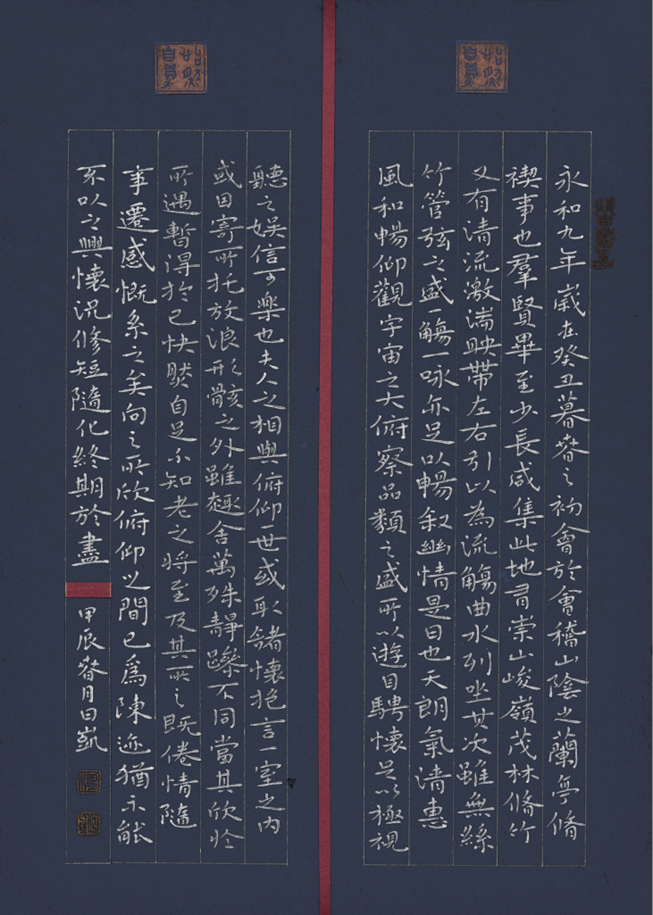 永和九年歲在癸丑暮春之初會於會稽山陰之蘭亭脩
禊事也羣賢畢至少長咸集此地有崇山峻嶺茂林脩竹
又有清流激湍映帶左右引以為流觴曲水列坐其次雖無絲
竹管弦之盛一觴一咏亦足以暢叙幽情是日也天朗氣清惠
風和暢仰觀宇宙之大俯察品類之盛所以遊目騁懷足以極視
聽之娛信可樂也夫人之相與俯仰一世或取諸懷抱言一室之內
或因寄所托放浪形骸之外雖趣舍萬殊靜躁不同當其欣於
所遇暫得於己快然自足不知老之將至及其所之既倦情隨
事遷感慨系之矣向之所欣俯仰之間已為陳迹猶不能
不以之興懷況修短隨化終期於盡
甲辰春月日凱